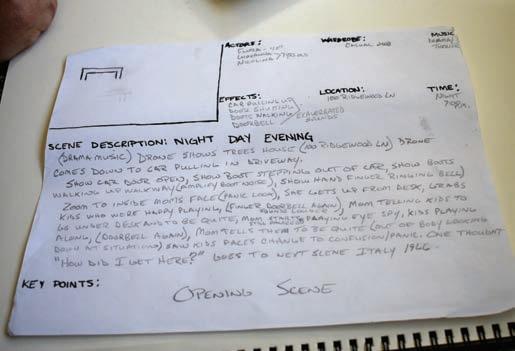 ACTORS:
WARDROBE:
CASUAL
MUSIC
DRAMA/
EFFECTS:
CAR PULLING UP
DOOR SHUTING
BOOTS WALKING / EXAGERATED
DOORBELL SOUNDS
LOCATION:
100 RIDGEWOOD LN
TIME:
NIGHT
SCENE DESCRIPTION: NIGHT DAY EVENING
(DRAMA MUSIC) DRONE SHOWS TREES HOUSE (100 RIDGEWOOD LN) DRONE
COMES DOWN TO CAR PULLING IN DRIVEWAY.
SHOW CAR DOOR OPEN, SHOW BOOT STEPPING OUT OF CAR, SHOW BOOTS
WALKING UP WALKWAY (AMPLIFY BOOT NOISE), SHOW HAND FINGER RINGING BELL)
ZOOM TO INSIDE MOM'S FACE (PANIC LOOK), SHE GETS UP FROM DESK, GRABS
KIDS WHO WERE HAPPY PLAYING, (FINGER DOORBELL AGAIN) MOM TELLING KIDS TO
SOUNDS LOUDER
GO UNDER DESK AND TO BE QUITE, MOM STARTS PLAYING EYE SPY, KIDS PLAYING
ALONG, (DOORBELL AGAIN), MOM TELLS THEM TO BE QUITE (OUT OF BODY LOOKING
DOWN AT SITUATION) SAW KIDS FACES CHANGE TO CONFUSION/PANIC. ONE THOUGHT
"HOW DID I GET HERE?" GOES TO NEXT SCENE ITALY 1966
KEY POINTS:
OPENING SCENE